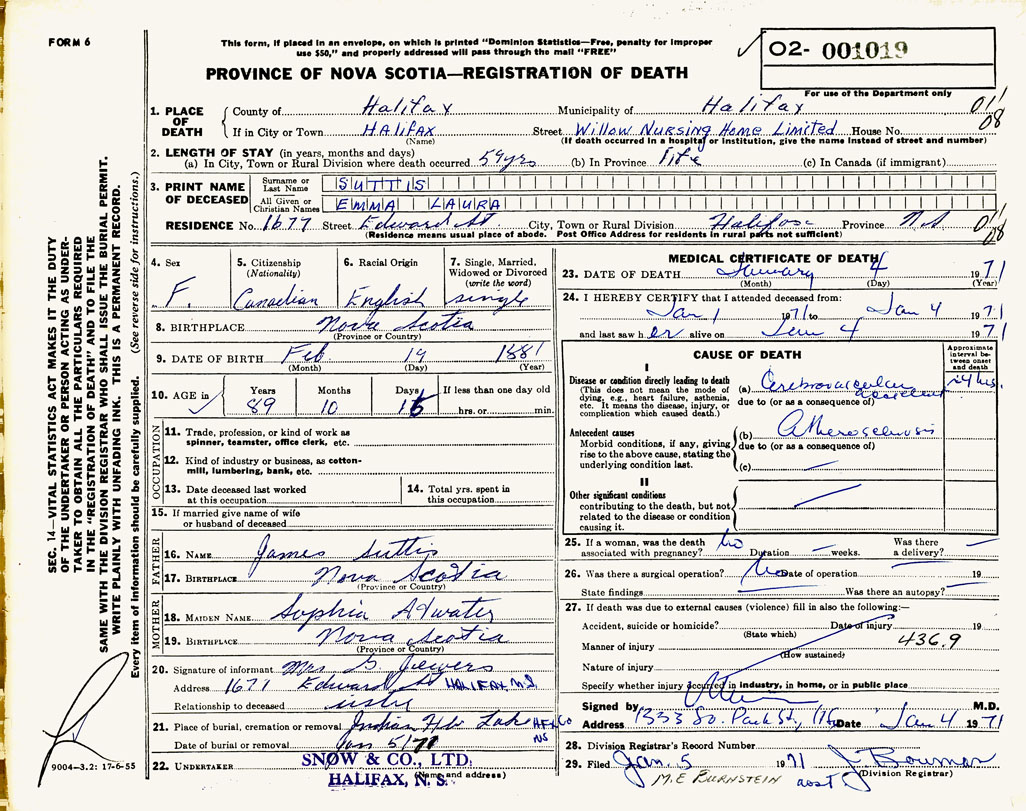 FORM 6
This form, if placed in an envelope, on which is printed "Dominion Statistics—Free, penalty for improper
use $50," and properly addressed will pass through the mail "FREE"
O2- 001019
PROVINCE OF NOVA SCOTIA—REGISTRATION OF DEATH
For use of the Department only
1. PLACE OF DEATH
County of Halifax Municipality of Halifax 011
08
If in City or Town HALIFAX Street Willow Nursing Home Limited House No.
(Name) (If death occurred in a hospital or institution, give the name instead of street and number)
2. LENGTH OF STAY (in years, months and days)
(a) In City, Town or Rural Division where death occurred 59 yrs (b) In Province life (c) In Canada (if immigrant)
3. PRINT NAME OF DECEASED
Surname or Last Name SUTTIS
All Given or Christian Names EMMA LAURA
RESIDENCE No. 1677 Street Edward St City, Town or Rural Division Halifax Province NS 011
08
(Residence means usual place of abode. Post Office Address for residents in rural parts not sufficient)
4. Sex F.
5. Citizenship (Nationality) Canadian
6. Racial Origin English
7. Single, Married, Widowed or Divorced (write the word) single
8. BIRTHPLACE Nova Scotia
(Province or Country)
9. DATE OF BIRTH Feb 19 1881
(Month) (Day) (Year)
10. AGE in Years 89 Months 10 Days 15 If less than one day old
hrs. or min.
OCCUPATION
11. Trade, profession, or kind of work as
spinner, teamster, office clerk, etc.
12. Kind of industry or business, as cotton-
mill, lumbering, bank, etc.
13. Date deceased last worked
at this occupation
14. Total yrs. spent in
this occupation
15. If married give name of wife
or husband of deceased
FATHER
16. NAME James Suttis
17. BIRTHPLACE Nova Scotia
(Province or Country)
MOTHER
18. MAIDEN NAME Sophia Atwater
19. BIRTHPLACE Nova Scotia
(Province or Country)
20. Signature of informant Mrs G. Jewers
Address 1677 Edward St HALIFAX N.S
Relationship to deceased
21. Place of burial, cremation or removal Indian Hbr Lake HFX Co
NS
Date of burial or removal Jan 5/71
22. UNDERTAKER SNOW & CO., LTD.
HALIFAX, N. S.
(Name and address)
MEDICAL CERTIFICATE OF DEATH
23. DATE OF DEATH January 4 1971
(Month) (Day) (Year)
24. I HEREBY CERTIFY that I attended deceased from:
Jan 1 1971 to Jan 4 1971
and last saw her alive on Jan 4 1971
CAUSE OF DEATH
Approximate interval between onset and death
I
Disease or condition directly leading to death
(This does not mean the mode of
dying, e.g., heart failure, asthenia,
etc. It means the disease, injury, or
complication which caused death.)
(a) Cerebrovascular accident 24 hrs.
due to (or as a consequence of)
Antecedent causes
Morbid conditions, if any, giving
rise to the above cause, stating the
underlying condition last.
(b) Atherosclerosis
due to (or as a consequence of)
(c)
II
Other significant conditions
contributing to the death, but not
related to the disease or condition
causing it.
25. If a woman, was the death No Was there
associated with pregnancy? Duration weeks. a delivery?
26. Was there a surgical operation? No Date of operation 19
State findings Was there an autopsy?
27. If death was due to external causes (violence) fill in also the following:—
Accident, suicide or homicide? Date of injury 19
(State which)
Manner of injury 436.9
(How sustained)
Nature of injury
Specify whether injury occurred in industry, in home, or in public place
Signed by M.D.
Address 1333 So. Park St, Hfx Date Jan 4 1971
28. Division Registrar's Record Number
29. Filed Jan. 5 1971
(Division Registrar)
M.E BURNSTEIN
9004—3.2: 17-6-55
SEC. 14—VITAL STATISTICS ACT MAKES IT THE DUTY
OF THE UNDERTAKER OR PERSON ACTING AS UNDER-
TAKER TO OBTAIN ALL THE PARTICULARS REQUIRED
IN THE "REGISTRATION OF DEATH" AND TO FILE THE
SAME WITH THE DIVISION REGISTRAR WHO SHALL ISSUE THE BURIAL PERMIT.
WRITE PLAINLY WITH UNFADING INK. THIS IS A PERMANENT RECORD.
Every item of information should be carefully supplied. (See reverse side for instructions.)